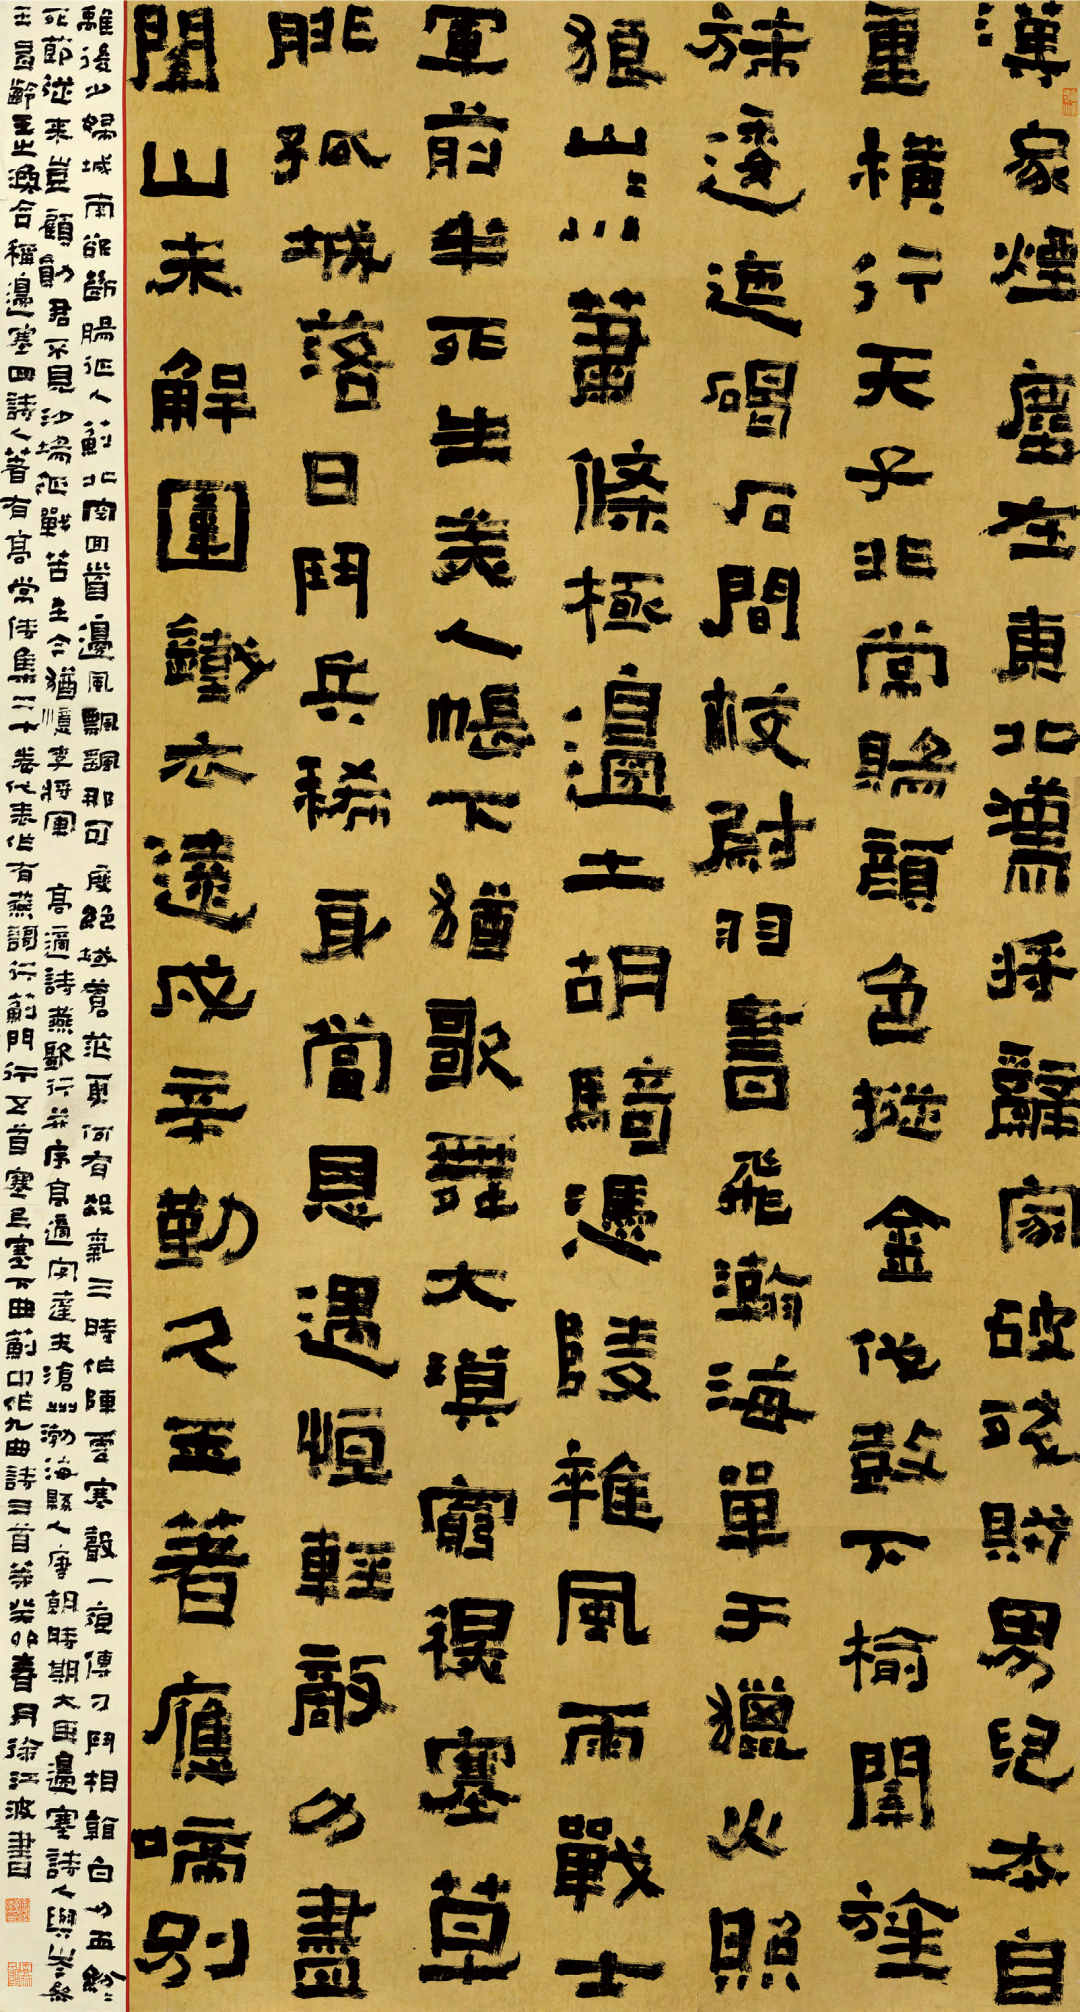 漢家煙塵在東北漢將辭家破殘賊男兒本自
重橫行天子非常賜顏色摐金伐鼓下榆關旌
旆逶迤碣石間校尉羽書飛瀚海單于獵火照
狼山〻川蕭條極邊土胡騎憑陵雜風雨戰士
軍前半死生美人帳下猶歌舞大漠窮塞草
腓孤城落日鬥兵稀身當恩遇恒輕敵力盡
關山未解圍鐵衣遠戍辛勤久玉著應啼別
離後少婦城南欲斷腸征人薊北空回首邊風飄飄那可度絕域蒼茫更何有殺氣三時作陣雲寒聲一夜傳刁鬥相看白刃血紛〻
死節從來豈顧勳君不見沙場征戰苦至今猶憶李將軍 高適詩燕歌行并序高適字達夫滄州渤海縣人唐朝時期大臣邊塞詩人與岑參
王昌齡王之渙合稱邊塞四詩人著有高常侍集二十卷代表作有燕謌行薊門行五首塞上塞下曲薊中作九曲詩三首等癸卯春月徐江波書